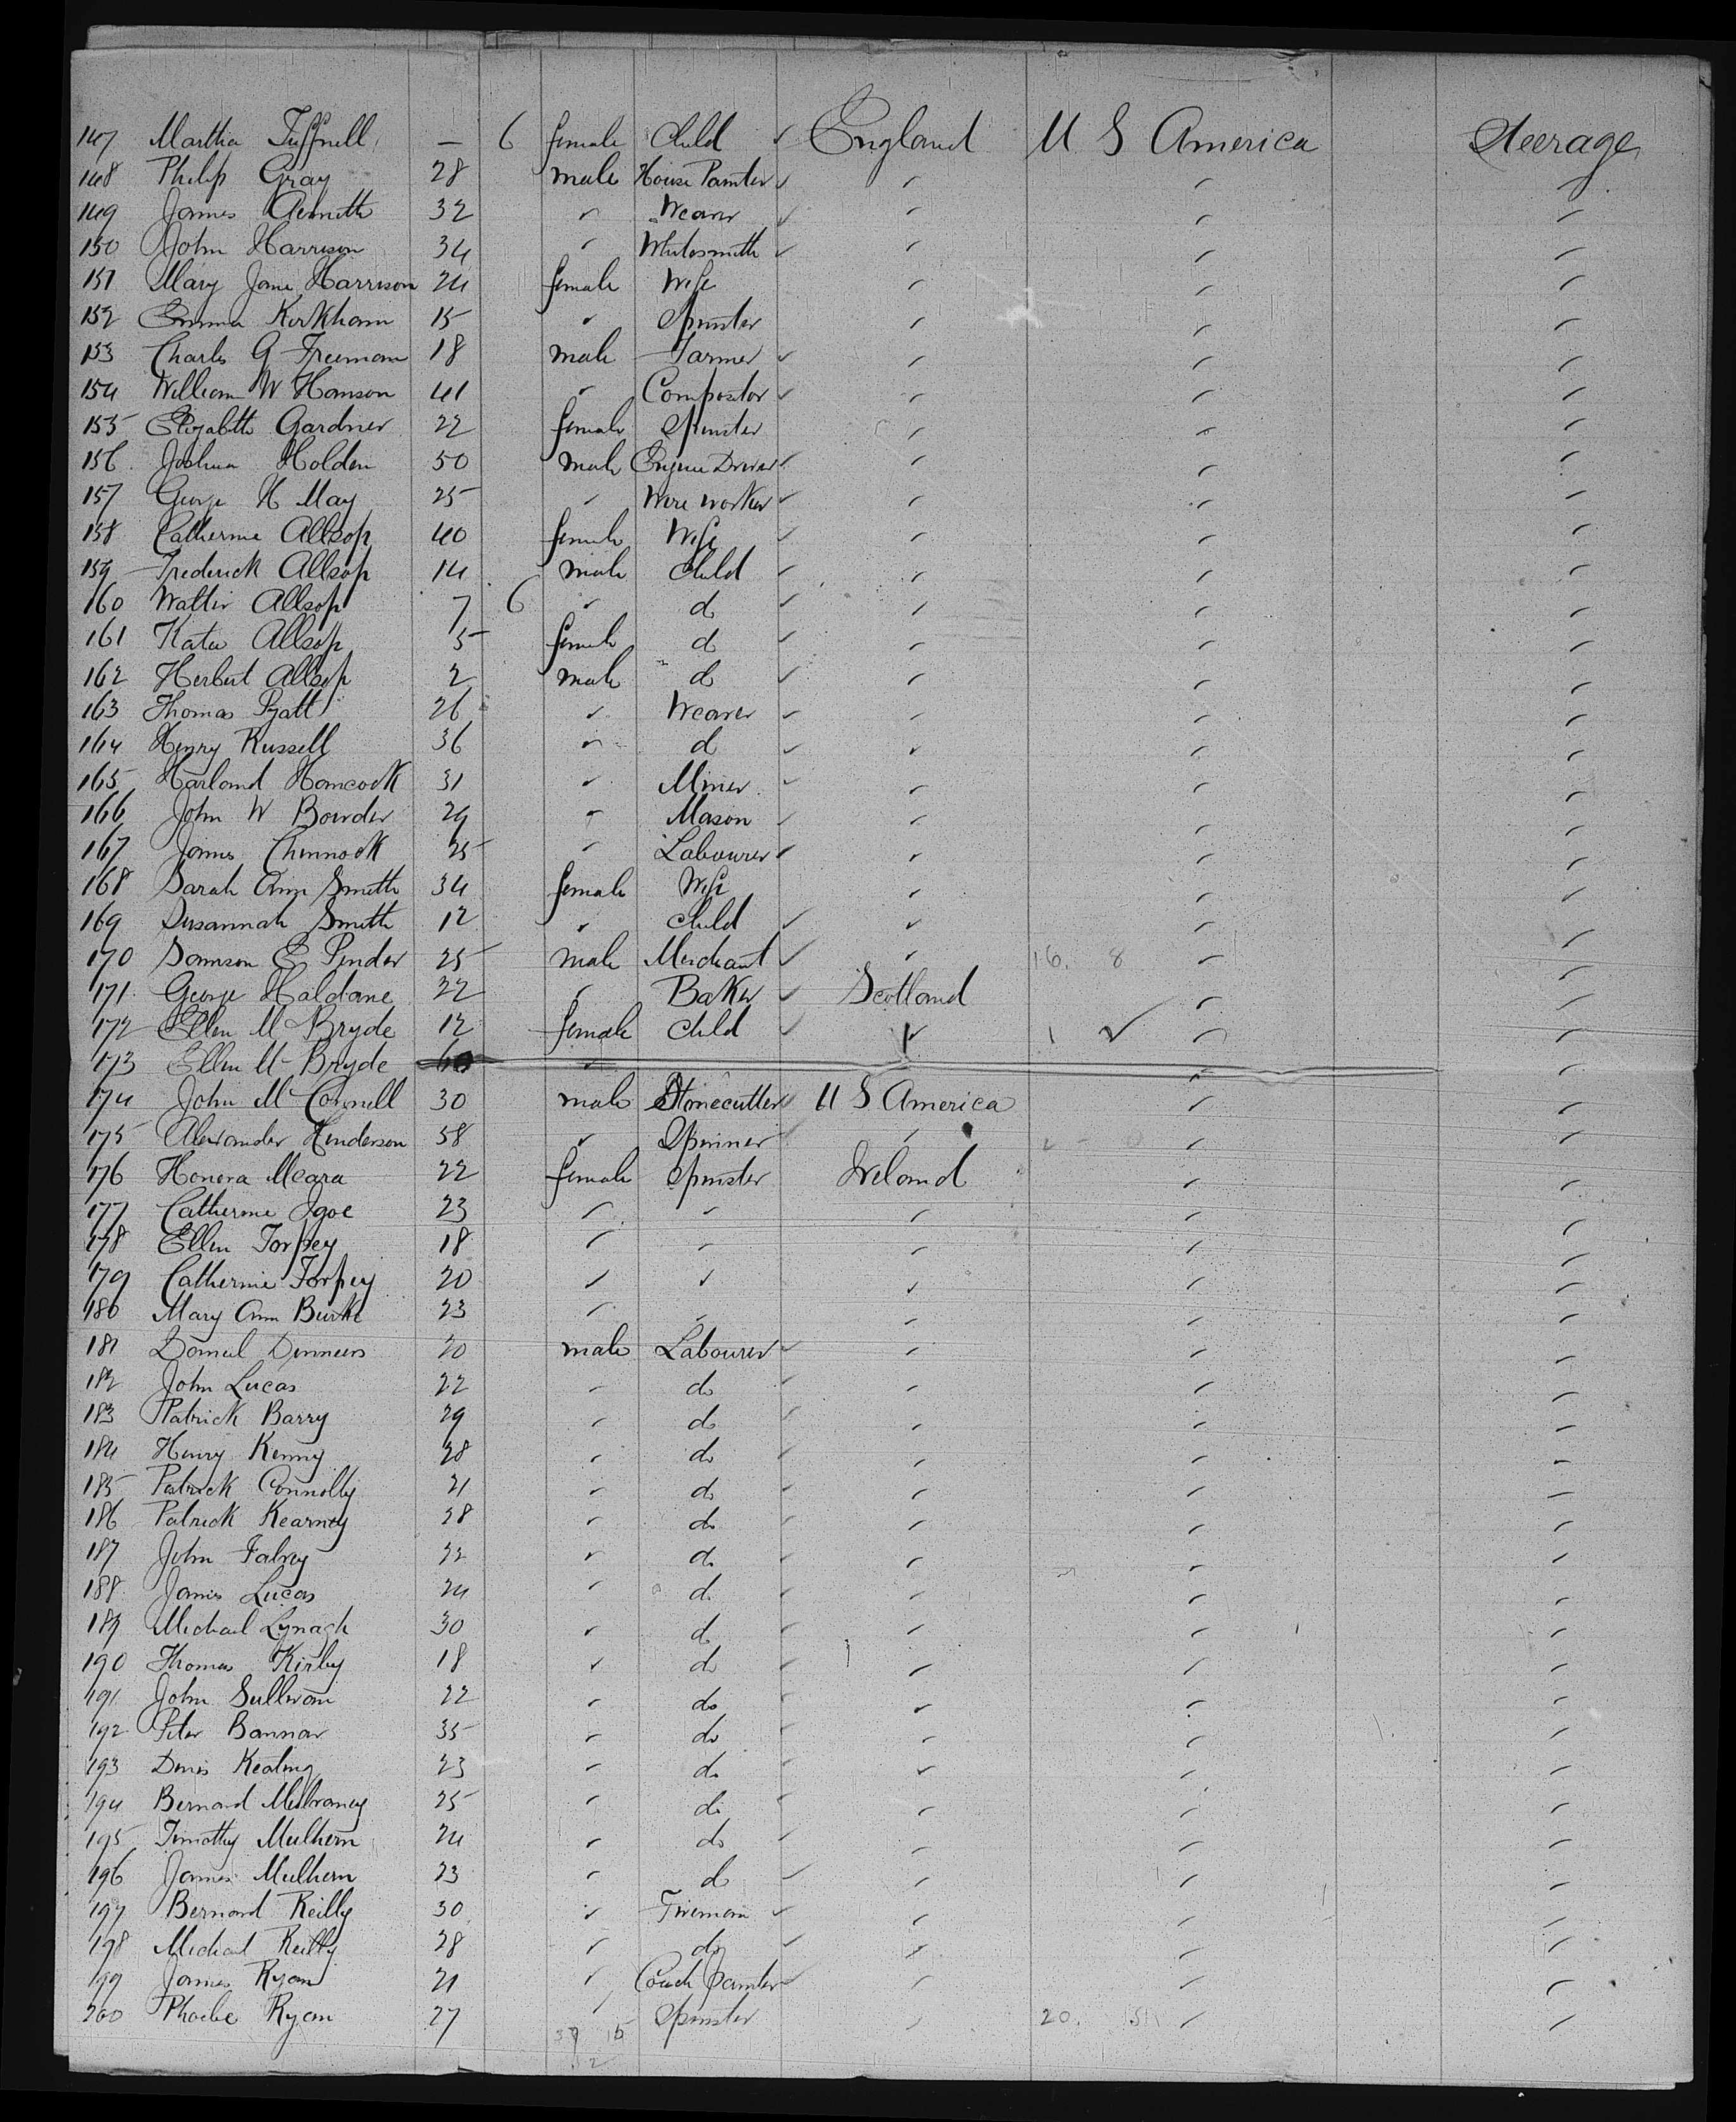 147 Martha Tuffnell — 6 female Child ✓ England U S America Steerage
148 Philip Gray 28 male House Painter ✓ " " "
149 James 32 " Weaver ✓ " " "
150 John Harrison 34 " Whitesmith ✓ " " "
151 Mary Jane Harrison 24 female Wife " " "
152 Emma Kirkham 15 " Spinster " " "
153 Charles G Freeman 18 male Farmer ✓ " " "
154 William W Hanson 41 " Compositor ✓ " " "
155 Elizabeth Gardner 22 female Spinster " " "
156 Joshua Holden 50 male Engine Driver ✓ " " "
157 George H May 25 " Wire worker ✓ " " "
158 Catherine Allsop 40 female Wife ✓ " " "
159 Frederick Allsop 14 male Child ✓ " " "
160 Walter Allsop 7 6 " d ✓ " " "
161 Kate Allsop 5 female d ✓ " " "
162 Herbert Allsop 2 male d ✓ " " "
163 Thomas Pyatt 26 " Weaver ✓ " " "
164 Henry Russell 36 " d ✓ " " "
165 Harland Hancock 31 " Miner ✓ " " "
166 John W Bowder 29 " Mason ✓ " " "
167 James Chinnock 25 " Labourer ✓ " " "
168 Sarah Ann Smith 34 female Wife " " "
169 Susannah Smith 12 " Child ✓ " " "
170 Samson E Pender 25 male Merchant ✓ " 16. 8 " "
171 George Haldane 22 " Baker ✓ Scotland " "
172 Ellen McBryde 12 female Child ✓ " 1 ✓ " "
173 Ellen McBryde " " "
174 John McConnell 30 male Stonecutter ✓ U S America " "
175 Alexander Henderson 58 " Spinner ✓ " " "
176 Honora Meara 22 female Spinster Ireland " "
177 Catherine Igoe 23 " " " " "
178 Ellen Torpey 18 " " " " "
179 Catherine Torpey 20 " " " " "
180 Mary Ann Burke 23 " " " " "
181 Daniel Dinneen 20 male Labourer ✓ " " "
182 John Lucas 22 " do ✓ " " "
183 Patrick Barry 29 " do ✓ " " "
184 Henry Kenny 28 " do ✓ " " "
185 Patrick Connolly 21 " do ✓ " " "
186 Patrick Kearney 38 " do ✓ " " "
187 John Fahey 22 " do ✓ " " "
188 James Lucas 24 " d. ✓ " " "
189 Michael Lynagh 30 " d ✓ " " "
190 Thomas Kirby 18 " do ✓ " " "
191 John Sullivan 22 " do ✓ " " "
192 Peter Bannar 35 " do ✓ " " "
193 Denis Keating 23 " do ✓ " " "
194 Bernard Mulvaney 25 " do ✓ " " "
195 Timothy Mulhern 24 " do ✓ " " "
196 James Mulhern 23 " do ✓ " " "
197 Bernard Reilly 30 " Fireman ✓ " " "
198 Michael Reilly 28 " do ✓ " " "
199 James Ryan 21 " Coach Painter ✓ " " "
200 Phoebe Ryan 27 " Spinster " 20. " "